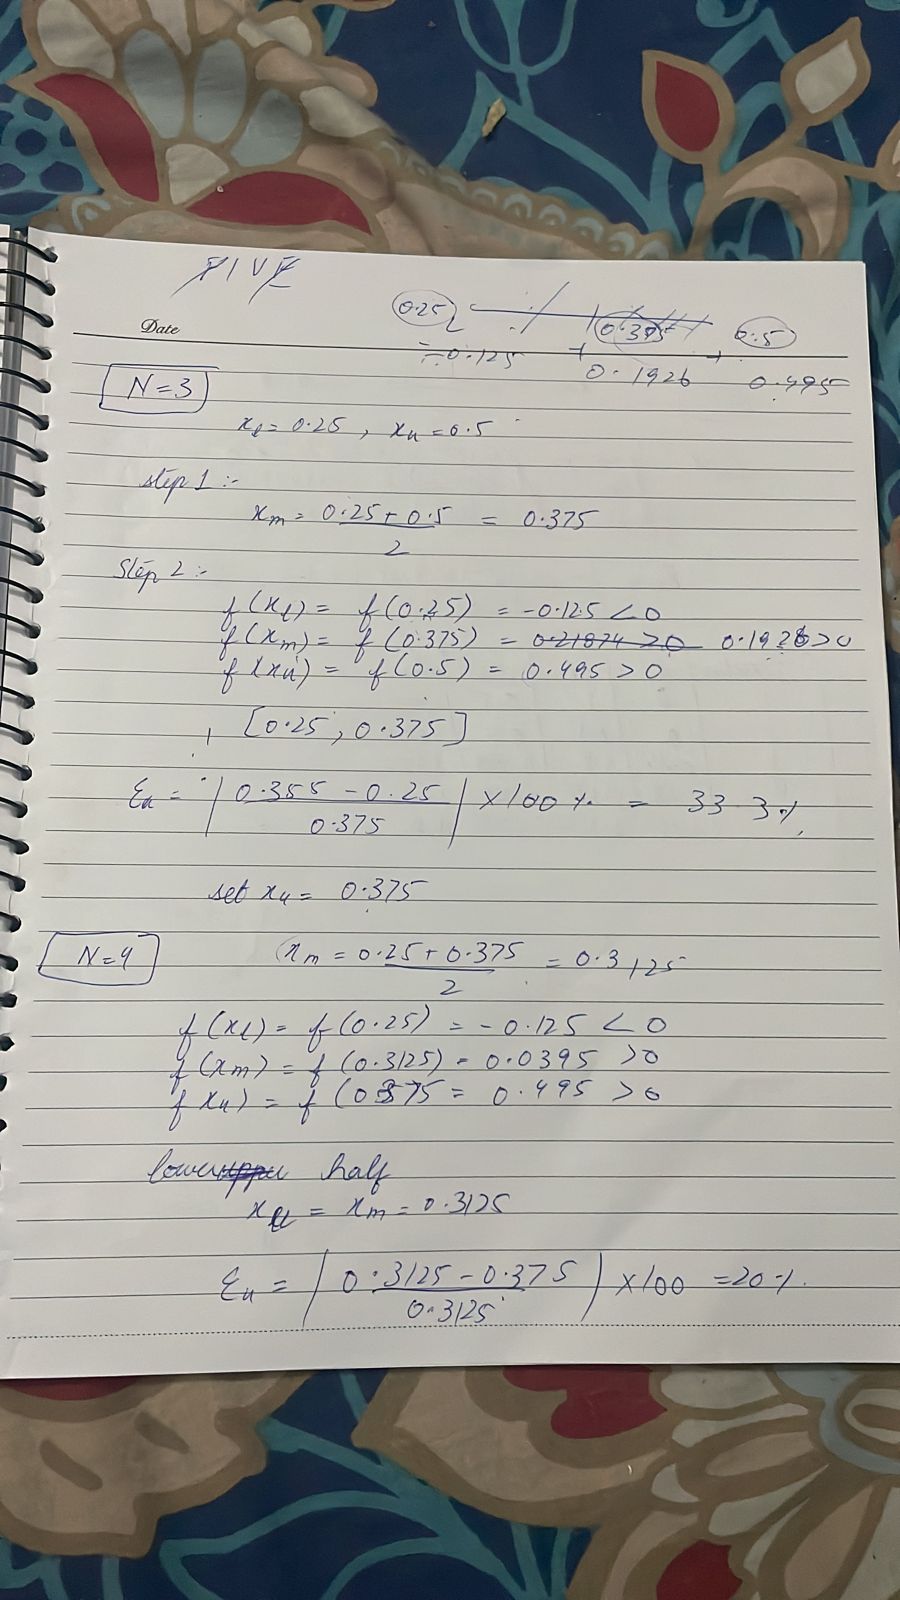 FIVE
0.25 0.375 0.5
Date
-0.125 0.1926 0.495
N=3
xl = 0.25 , xu = 0.5
step 1 :-
xm = 0.25 + 0.5 / 2 = 0.375
Step 2 :-
f(xl) = f(0.25) = -0.125 < 0
f(xm) = f(0.375) = 0.21874 > 0 0.1926 > 0
f(xu) = f(0.5) = 0.495 > 0
[0.25, 0.375]
Ea = | 0.355 - 0.25 / 0.375 | X 100 % = 33.3%
set xu = 0.375
N=4
xm = 0.25 + 0.375 / 2 = 0.3125
f(xl) = f(0.25) = -0.125 < 0
f(xm) = f(0.3125) = 0.0395 > 0
f xu) = f(0.375 = 0.495 > 0
lower half
= xm = 0.3125
Ea = | 0.3125 - 0.375 / 0.3125 | X 100 = 20%.